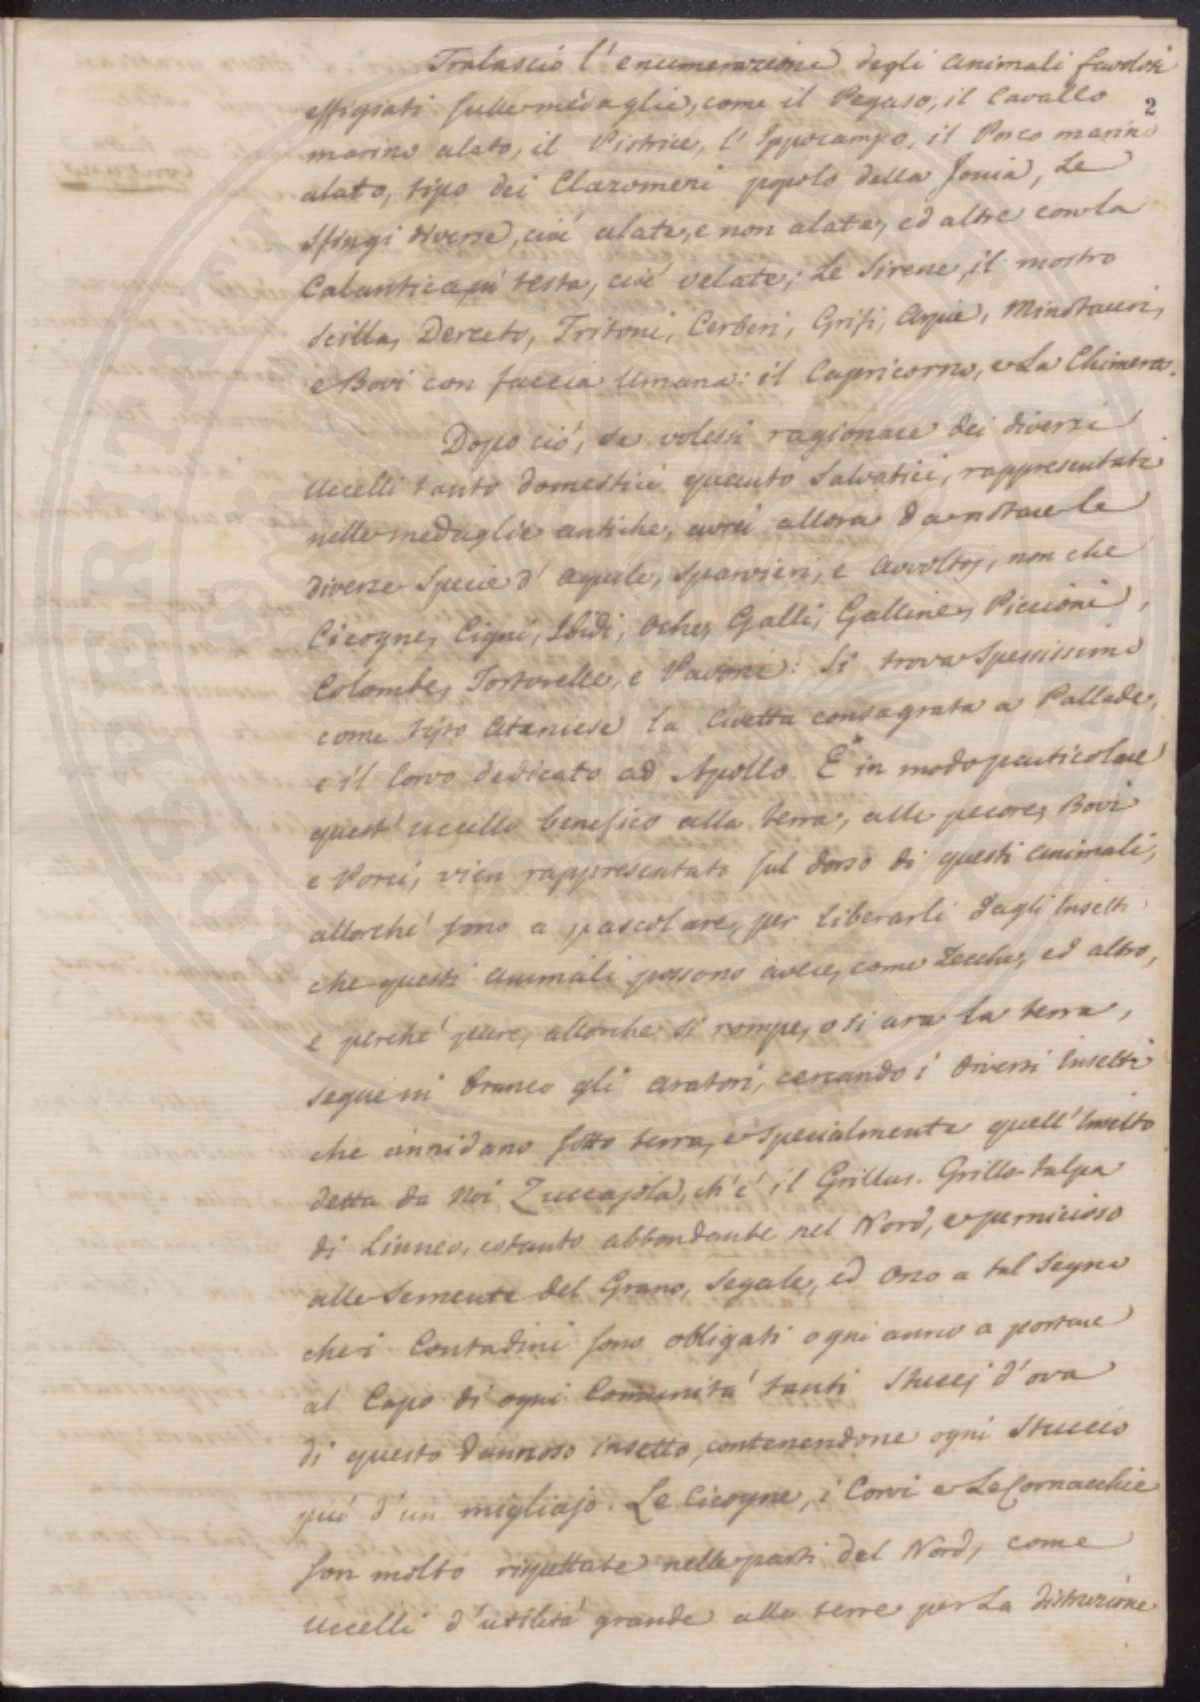 Tralascio l'enumerazione degli animali favolosi
effigiati sulle medaglie, come il Pegaso, il Cavallo
2
marino alato, il Pistrice, l'Ippocampo, il Porco marino
alato, tipo dei Clazomeni popolo della Jonia, Le
Sfingi diverse, cioè alate, e non alate, ed altre con la
Calantica in testa, cioè velate; Le Sirene, il mostro
Scilla, Derceto, Tritoni, Cerberi, Grifi, Arpie, Minotauri,
e Bovi con faccia Umana: il Capricorno, e La Chimera.
Dopo ciò, se volessi ragionare dei diversi
Uccelli tanto domestici quanto Salvatici, rappresentati
nelle medaglie antiche, avrei allora da notare le
diverse Specie d'Aquile, Sparvieri, e Avvoltoj, non che
Cicogne, Cigni, Ibidi, Oche, Galli, Galline, Piccioni,
Colombe, Tortorelle, e Pavoni: Si trova Spessissimo
come tipo Ateniese la Civetta consagrata a Pallade,
e il Corvo dedicato ad Apollo. E' in modo particolare
quest'uccello benefico alla terra, alle pecore, Bovi
e Porci, vien rappresentato sul dorso di questi animali,
allorché sono a pascolare, per liberarli dagli Insetti
che questi animali possono avere, come Zecche, ed altro,
e perché pure, allorche si rompe, o si ara la terra,
segue in branco gli aratori, cercando i diversi Insetti
che annidano sotto terra, e Specialmente quell'Insetto
detta da Noi Zuccajola, ch'è il Grillus. Grillo-talpa
di Linneo, cotanto abbondante nel Nord, e pernicioso
alle Semente del Grano, Segale, ed Orzo a tal Segno
che i Contadini sono obligati ogni anno a portare
al Capo di ogni Comunità tanti Stuccj d'ova
di questo dannoso insetto, contenendone ogni Stuccio
più d'un migliajo. Le Cicogne, i Corvi e Le Cornacchie
son molto rispettate nelle parti del Nord, come
Uccelli d'utilità grande alle terre per La distruzione